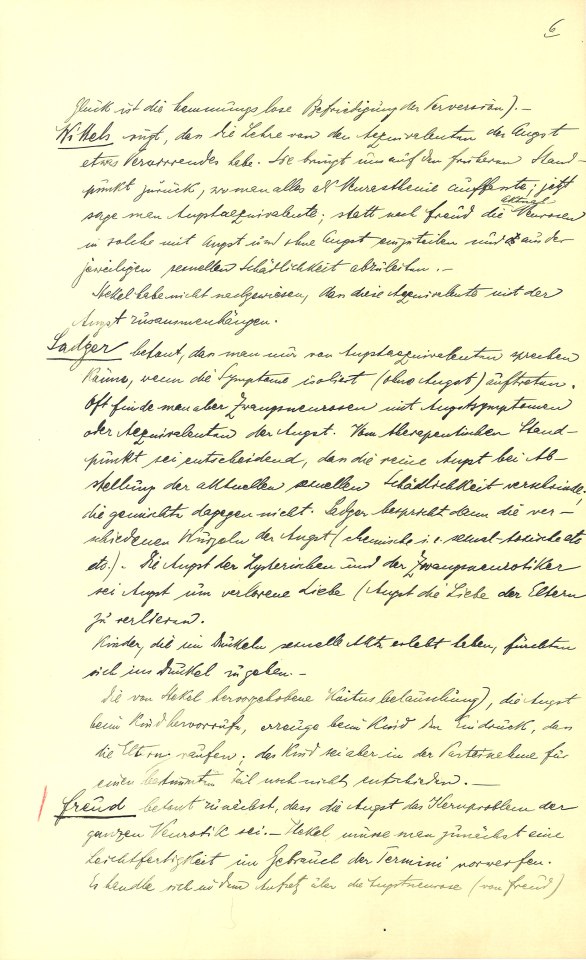 6
Glück ist die hemmungslose Befriedigung der Perversion). –
Wittels sagt, dass die Lehre von den Aequivalenten der Angst
etwas Verwirrendes habe. Sie bringt uns auf den früheren Stand-
punkt zurück, wo man alles als Neurasthenie auffasste; jetzt
sage man Angstaequivalente; statt nach Freud die Aktual
Neurosen
in solche mit Angst und ohne Angst einzuteilen und aus der
jeweiligen sexuellen Schädlichkeit abzuleiten. –
Stekel habe nicht nachgewiesen, dass diese Aequivalente mit der
Angst zusammenhängen.
Sadger betont, dass man nur von Angstaequivalenten sprechen
könne, wenn die Symptome isoliert (ohne Angst) auftreten.
Oft finde man aber Zwangsneurosen mit Angstsymptomen
oder Aequivalenten der Angst. Vom therapeutischen Stand-
punkt sei entscheidend, dass die reine Angst bei Ab-
stellung der aktuellen sexuellen Schädlichkeit verschwinde,
die gemischte dagegen nicht. Sadger bespricht dann die ver-
schiedenen Wurzeln der Angst (chemische i. e. sexual-toxische etc
etc.). Die Angst der Hysterischen und der Zwangsneurotiker
sei Angst um verlorene Liebe (Angst die Liebe der Eltern
zu verlieren.
Kinder, die im Dunkeln sexuelle Akte erlebt haben, fürchten
sich ins Dunkel zu gehen. –
Die von Stekel hervorgehobene Koitusbelauschung), die Angst
beim Kind hervorrufe, erzeuge beim Kind den Eindruck, dass
die Eltern raufen; das Kind sei aber in der Parteinahme für
einen bestimmten Teil noch nicht entschieden. –
Freud betont zunächst, dass die Angst das Kernproblem der
ganzen Neurotik sei. – Stekel müsse man zunächst eine
Leichtfertigkeit im Gebrauch der Termini vorwerfen.
Es handle sich in dem Aufsatz über die Angstneurose (von Freud)